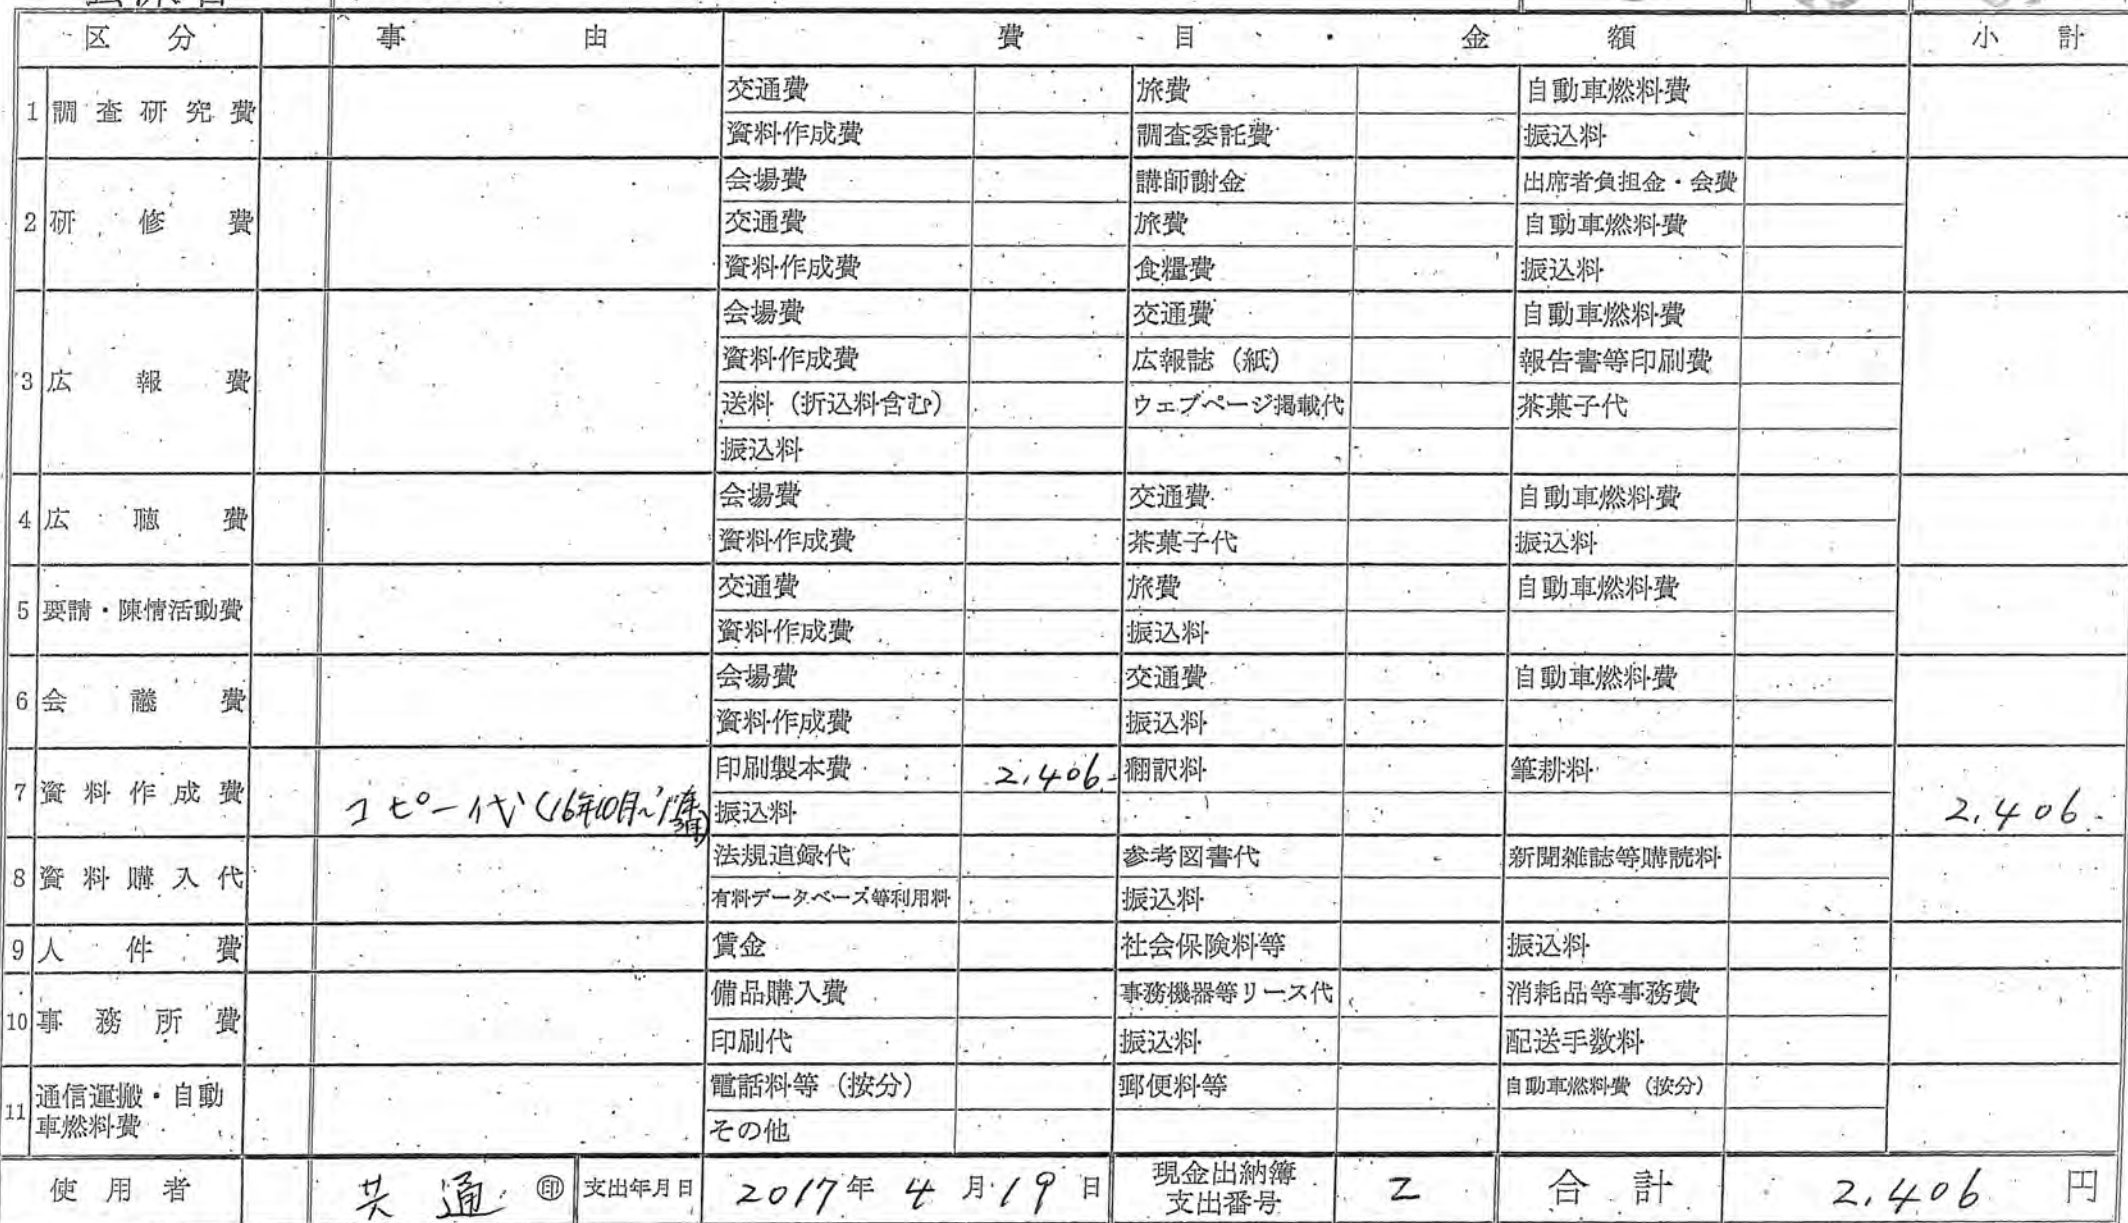 区分 事由 費目・金額 小計
1 調査研究費 交通費 旅費 自動車燃料費
資料作成費 調査委託費 振込料
2 研修費 会場費 講師謝金 出席者負担金・会費
交通費 旅費 自動車燃料費
資料作成費 食糧費 振込料
3 広報費 会場費 交通費 自動車燃料費
資料作成費 広報誌（紙） 報告書等印刷費
送料（折込料含む） ウェブページ掲載代 茶菓子代
振込料
4 広聴費 会場費 交通費 自動車燃料費
資料作成費 茶菓子代 振込料
5 要請・陳情活動費 交通費 旅費 自動車燃料費
資料作成費 振込料
6 会議費 会場費 交通費 自動車燃料費
資料作成費 振込料
7 資料作成費 印刷製本費 2,406. 翻訳料 筆耕料
コピー代（16年10月~ 振込料 2,406.
8 資料購入代 法規追録代 参考図書代 新聞雑誌等購読料
有料データベース等利用料 振込料
9 人件費 賃金 社会保険料等 振込料
10 事務所費 備品購入費 事務機器等リース代 消耗品等事務費
印刷代 振込料 配送手数料
11 通信運搬・自動 電話料等（按分） 郵便料等 自動車燃料費（按分）
車燃料費 その他
使用者 共通 印 支出年月日 2017年4月19日 現金出納簿 2 合計 2,406 円
支出番号